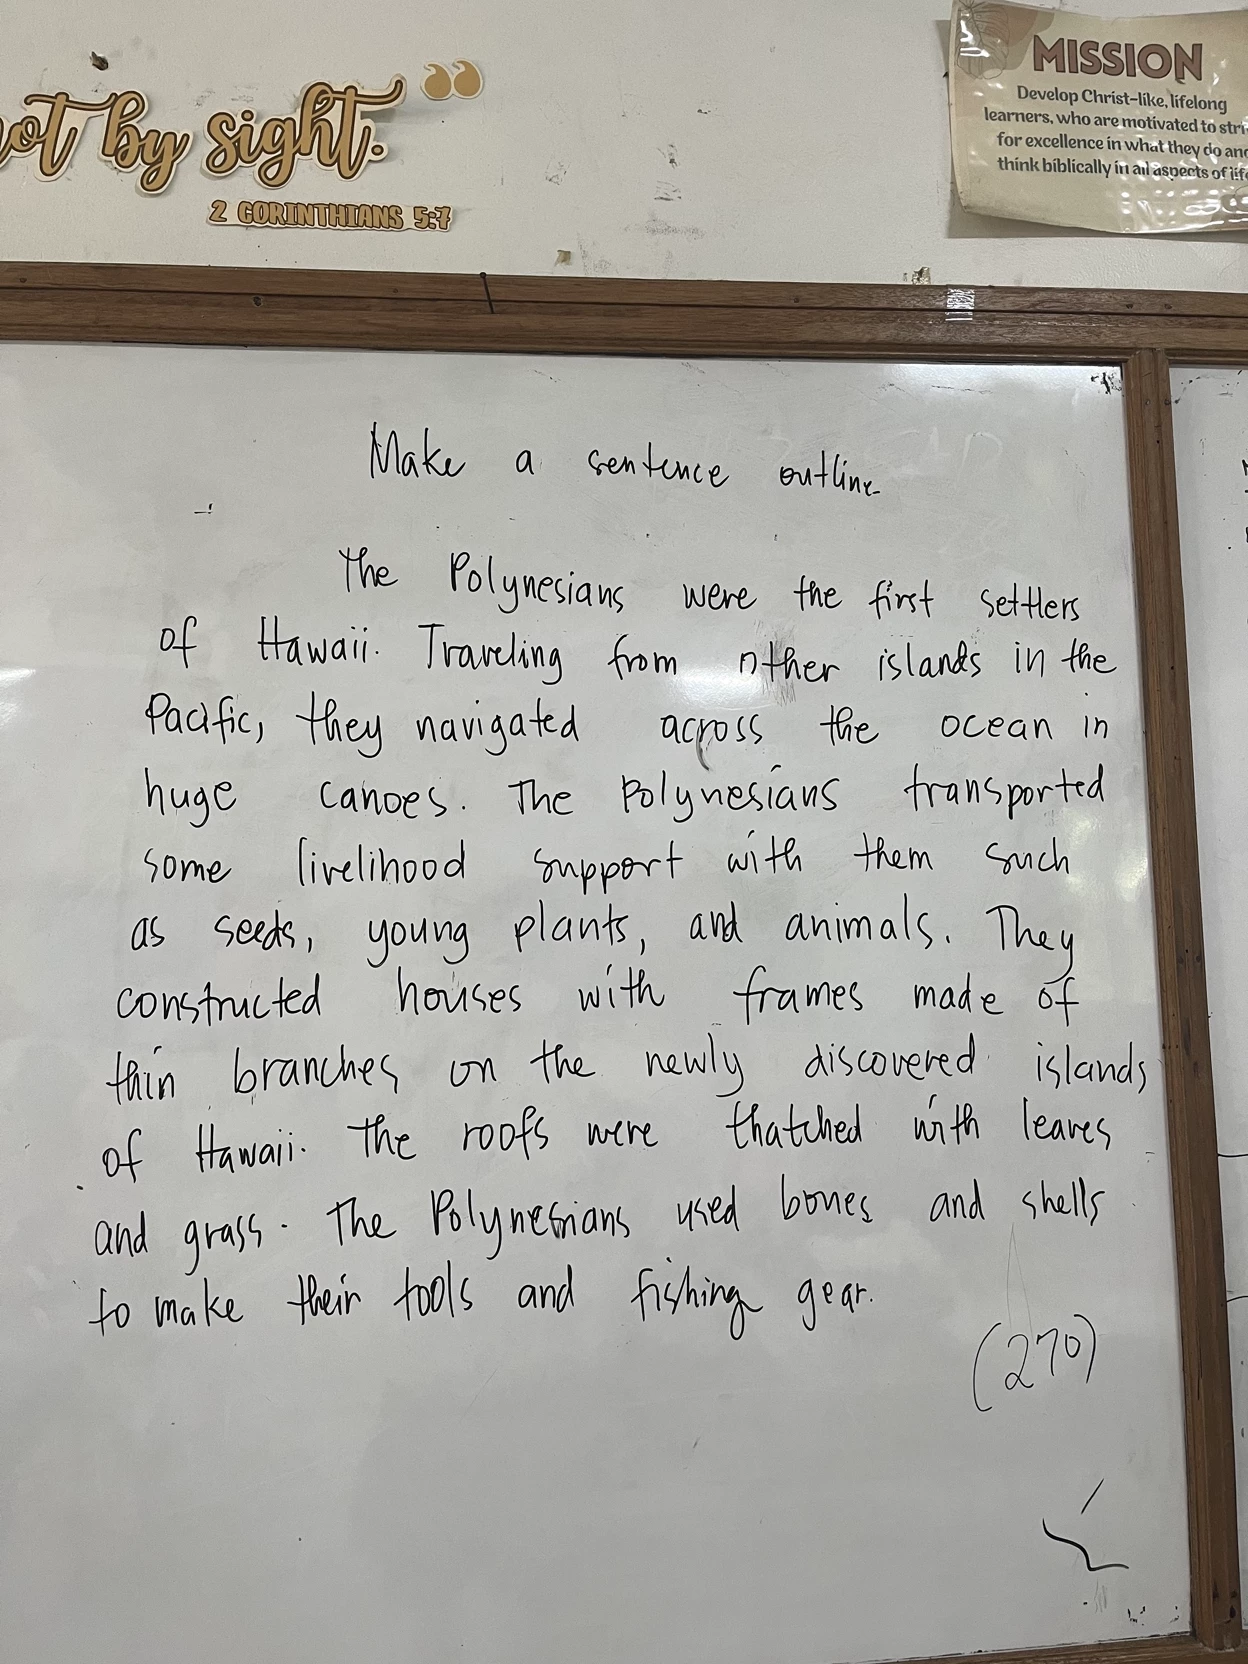 not by sight."
2 CORINTHIANS 5:7
MISSION
Develop Christ-like, lifelong
learners, who are motivated to
for excellence in what they do
think biblically in all aspects of
Make a sentence outline.
The Polynesians were the first settlers
of Hawaii. Traveling from other islands in the
Pacific, they navigated across the ocean in
huge canoes. The Polynesians transported
some livelihood support with them such
as seeds, young plants, and animals. They
constructed houses with frames made of
thin branches on the newly discovered islands
of Hawaii. The roofs were thatched with leaves
and grass. The Polynesians used bones and shells
to make their tools and fishing gear.
(270)